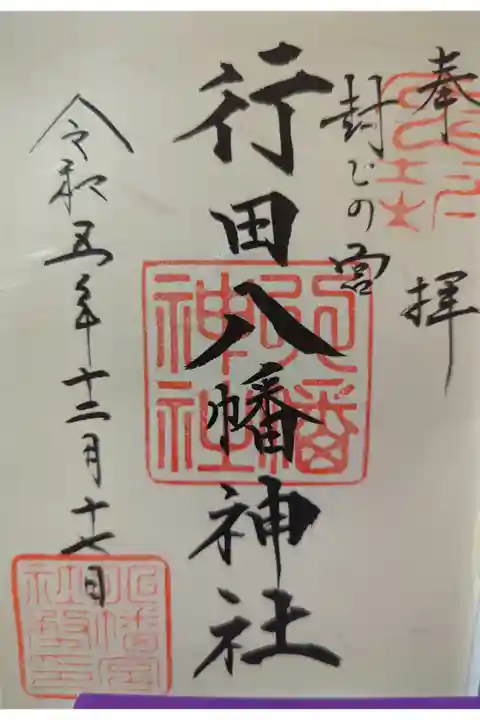 奉拝
封じの宮
行田八幡神社
八幡神社
令和五年十二月十七日